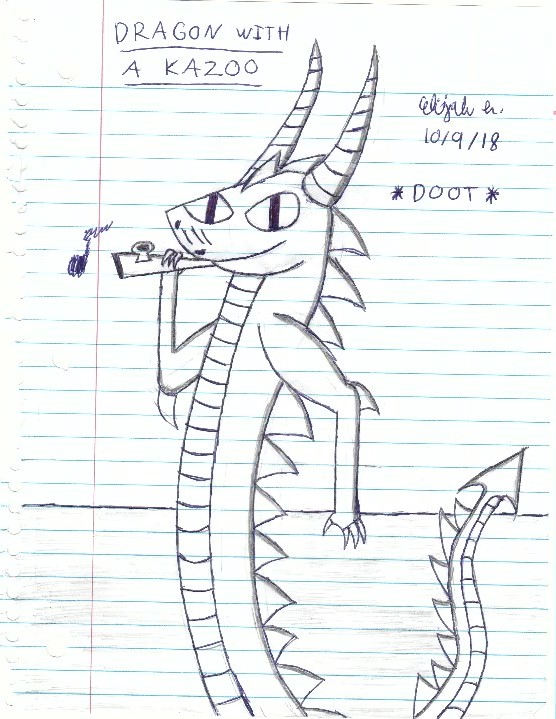 DRAGON WITH
A KAZOO
Elijah
10/9/18
*DOOT*